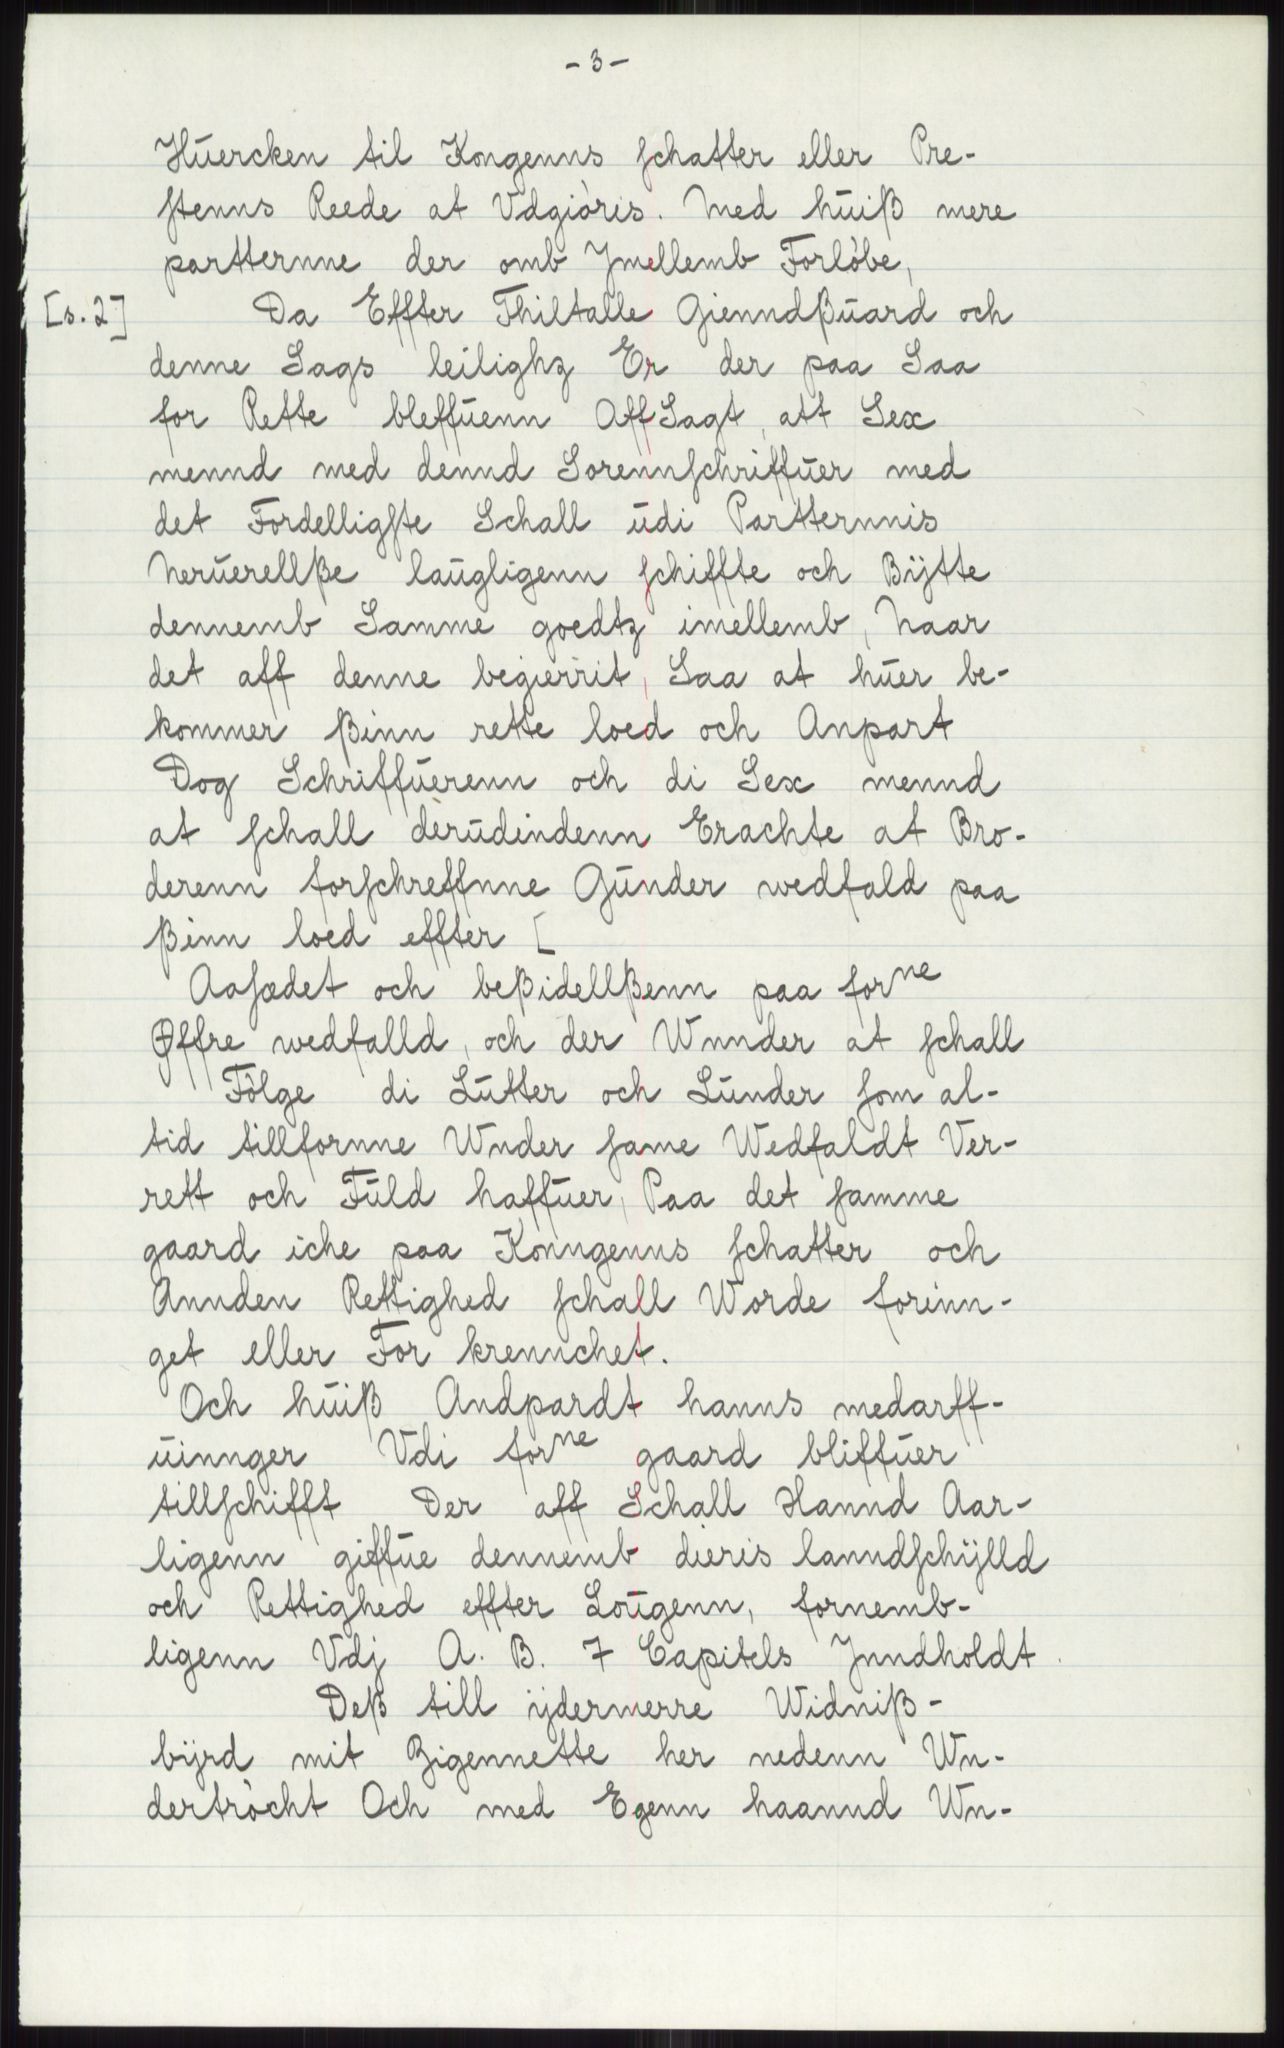 - 3 -
Huercken til Kongenns schatter eller Pre-
stenns Reede at Vdgiòris. Med huiß mere
partternne der omb Ymellemb Forlòbe,
[s. 2] Da Effter Thiltalle Giennd ßuard och
denne Sags leilighz Er der paa Saa
for Rette bleffuenn Aff Sagt, att Sex
mennd med dennd Sorennschriffuer med
det Fordelligste Schall udi Partternnis
Neruerellße laugligenn schiffte och Bÿtte
dennemb Samme goedtz imellemb, Naar
det aff denne begierrit, Saa at huer be-
kommer ßinn rette loed och Anpart
Dog Schriffuerenn och di Sex mennd
at schall derudindenn Erachte at Bro-
derenn forschreffnne Gunder wedfald paa
ßinn loed effter [
Aasædet och beßidellßenn paa forne
Øffre wedfalld, och der Wnnder at schall
Fòlge di Lutter och Lunder som al-
tid tillfornne Wnder same Wedfaldt Ver-
rett och Fuld haffuer, Paa det samme
gaard iche paa Konngenns schatter och
Annden Rettighed schall Worde forinn-
get eller For krennchet.
Och huiß Andpardt hanns medarff-
uinnger Vdi forne gaard bliffuer
tillschifft Der aff Schall Hannd Aar-
ligenn giffue dennemb dieris lanndschÿlld
och Rettighed effter Lougenn, fornemb-
ligenn Vdj A. B. 7 Capitels Jnndholdt.
Deß till ÿdermerre Widniß-
bÿrd mit Zigennette her nedenn Wn-
dertròcht Och med Egenn haannd Wn-